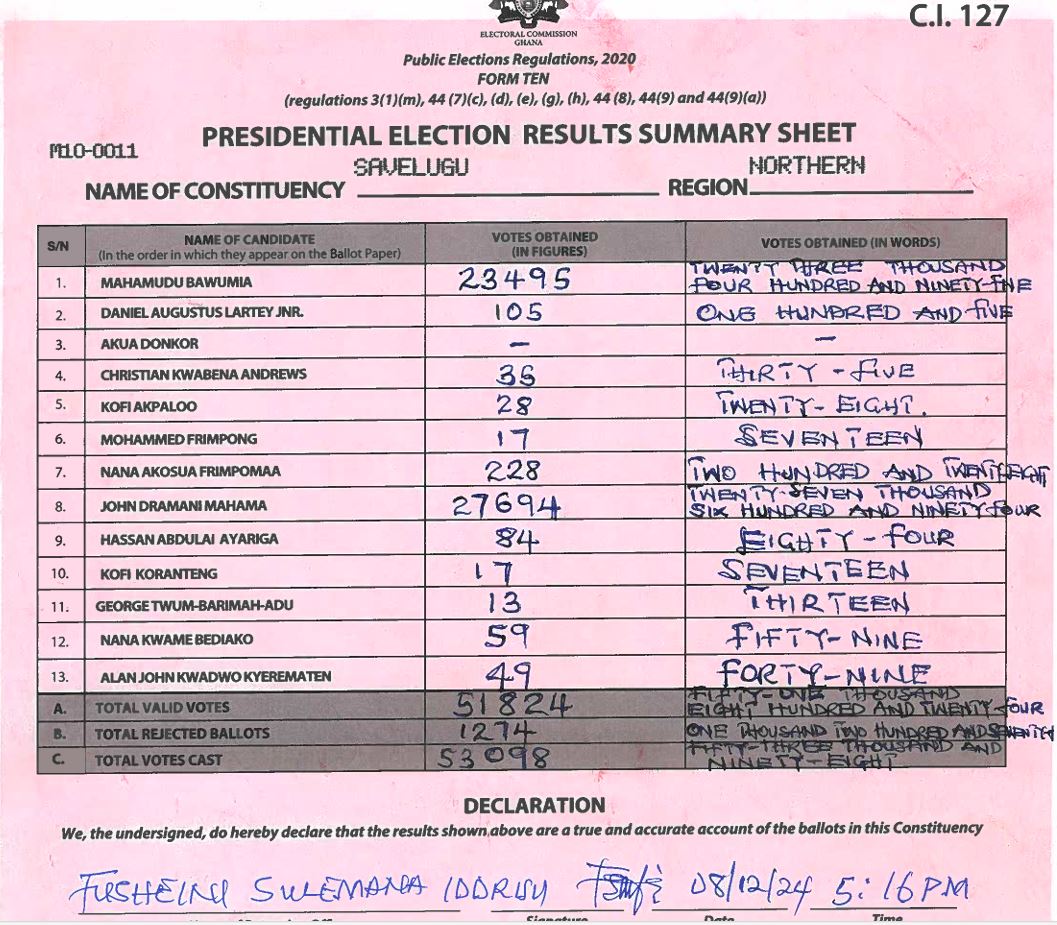 C.I. 127
ELECTORAL COMMISSION
GHANA
Public Elections Regulations, 2020
FORM TEN
(regulations 3(1)(m), 44 (7)(c), (d), (e), (g), (h), 44 (8), 44(9) and 44(9)(a))
PRESIDENTIAL ELECTION RESULTS SUMMARY SHEET
M10-0011
NAME OF CONSTITUENCY SAVELUGU REGION NORTHERN
S/N NAME OF CANDIDATE (In the order in which they appear on the Ballot Paper) VOTES OBTAINED (IN FIGURES) VOTES OBTAINED (IN WORDS)
1. MAHAMUDU BAWUMIA 23495 TWENTY THREE THOUSAND FOUR HUNDRED AND NINETY-FIVE
2. DANIEL AUGUSTUS LARTEY JNR. 105 ONE HUNDRED AND FIVE
3. AKUA DONKOR - -
4. CHRISTIAN KWABENA ANDREWS 35 THIRTY-FIVE
5. KOFI AKPALOO 28 TWENTY-EIGHT.
6. MOHAMMED FRIMPONG 17 SEVENTEEN
7. NANA AKOSUA FRIMPOMAA 228 TWO HUNDRED AND TWENTY EIGHT
8. JOHN DRAMANI MAHAMA 27694 TWENTY-SEVEN THOUSAND SIX HUNDRED AND NINETY-FOUR
9. HASSAN ABDULAI AYARIGA 84 EIGHTY-FOUR
10. KOFI KORANTENG 17 SEVENTEEN
11. GEORGE TWUM-BARIMAH-ADU 13 THIRTEEN
12. NANA KWAME BEDIAKO 59 FIFTY-NINE
13. ALAN JOHN KWADWO KYEREMATEN 49 FORTY-NINE
A. TOTAL VALID VOTES 51824 FIFTY-ONE THOUSAND EIGHT HUNDRED AND TWENTY-FOUR
B. TOTAL REJECTED BALLOTS 1274 ONE THOUSAND TWO HUNDRED AND
C. TOTAL VOTES CAST 53098 FIFTY-THREE THOUSAND AND NINETY-EIGHT
DECLARATION
We, the undersigned, do hereby declare that the results shown above are a true and accurate account of the ballots in this Constituency
FUSHEINI SULEMANA IDDRISU 08/12/24 5:16PM
Signature Date Time